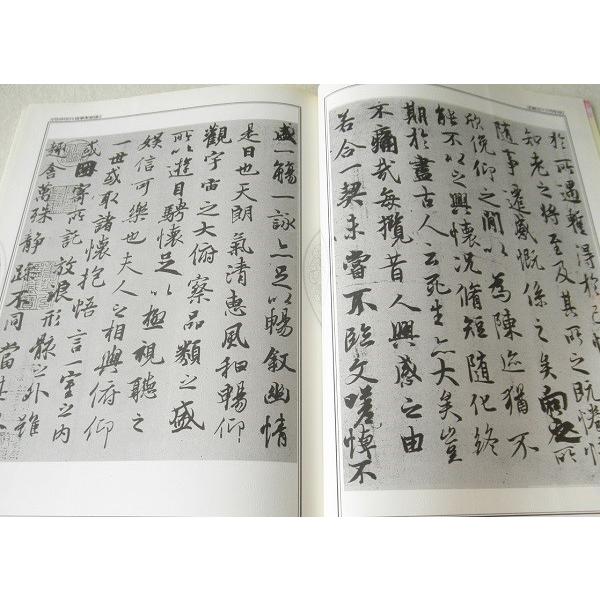 盛一觴一詠亦足以暢叙幽情
是日也天朗氣清惠風和暢仰
觀宇宙之大俯察品類之盛
所以遊目騁懷足以極視聽之
娛信可樂也夫人之相與俯仰
一世或取諸懷抱悟言一室之內
或因寄所託放浪形骸之外雖
趣舍萬殊靜躁不同當其
於所遇蹔得於己
知老之將至及其所之既惓
隨事遷感慨係之矣向之所
欣俛仰之間以為陳迹猶不
能不以之興懷況脩短隨化終
期於盡古人云死生亦大矣豈
不痛哉每攬昔人興感之由
若合一契未嘗不臨文嗟悼不